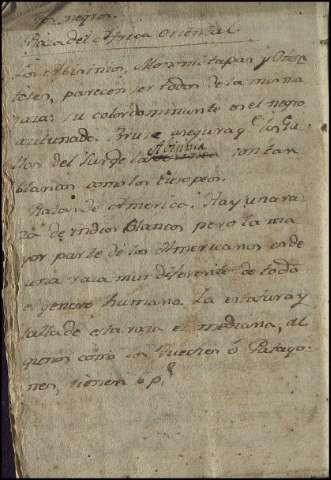 negros.
Raza del Africa Oriental.
Los Abisinios, Monomitapas, y Oten
totes, parecen ser todos de la misma
raza: su color dominante es el negro
asegura q.e los Ga
llas del Sur de la Abisinia son tan
blancos como los Europeos.
Razas de America. Hay una ra
za de indios blancos pero la ma
yor parte de los Americanos es de
una raza mui diferente de todo
el genero humano. La estatura y
talla de esta raza es mediana, al
gunos como los ó Patago
nes, tienen 6 p.s